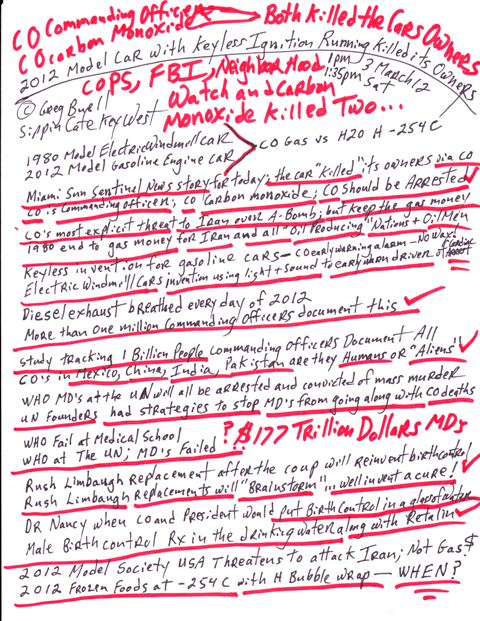 CO Commanding Officer
CO Carbon Monoxide
Both Killed the Cars Owners
2012 Model Car with Keyless Ignition Running Killed its Owners
COPS, FBI, Neighborhood
Watch and Carbon
Monoxide Killed Two...
1pm 3 March 12
1:35pm Sat
© Greg Buell
Sippin Cafe Key West
1980 Model Electric Windmill Car
2012 Model Gasoline Engine Car
CO Gas vs H2O H -254 C
Miami Sun Sentinel News story for today; the car "killed" its owners via CO
CO is Commanding officer; CO Carbon monoxide; CO should be ARRESTED
CO's most explicit threat to Iran over A-Bomb; but keep the gas money
1980 end to gas money for Iran and all "Oil Producing" Nations + Oil Men
Keyless invention for gasoline cars - CO early warning alarm - No way!
Electric Windmill Cars invention using light + sound to early warn driver of Cardiac Arrest
Diesel exhaust breathed every day of 2012
More than one million Commanding Officers document this
Study tracking 1 Billion People Commanding Officers Document All
CO's in Mexico, China, India, Pakistan are they Humans or "Aliens"
WHO MD's at the UN will all be arrested and convicted of mass murder
UN Founders had strategies to stop MD's from going along with CO deaths
WHO Fail at Medical School
WHO at The UN; MD's Failed
? $177 Trillion Dollars MDs
Rush Limbaugh Replacement after the coup will reinvent birthcontrol
Rush Limbaugh Replacements will "Brainstorm"... we'll invent a cure!
DR Nancy when CO and President would put Birth Control in a glass of water
Male Birth control Rx in the drinking water along with Retalin
2012 Model Society USA Threatens to attack Iran; Not Gas $
2012 Frozen Foods at -254 C with H Bubble wrap - WHEN?